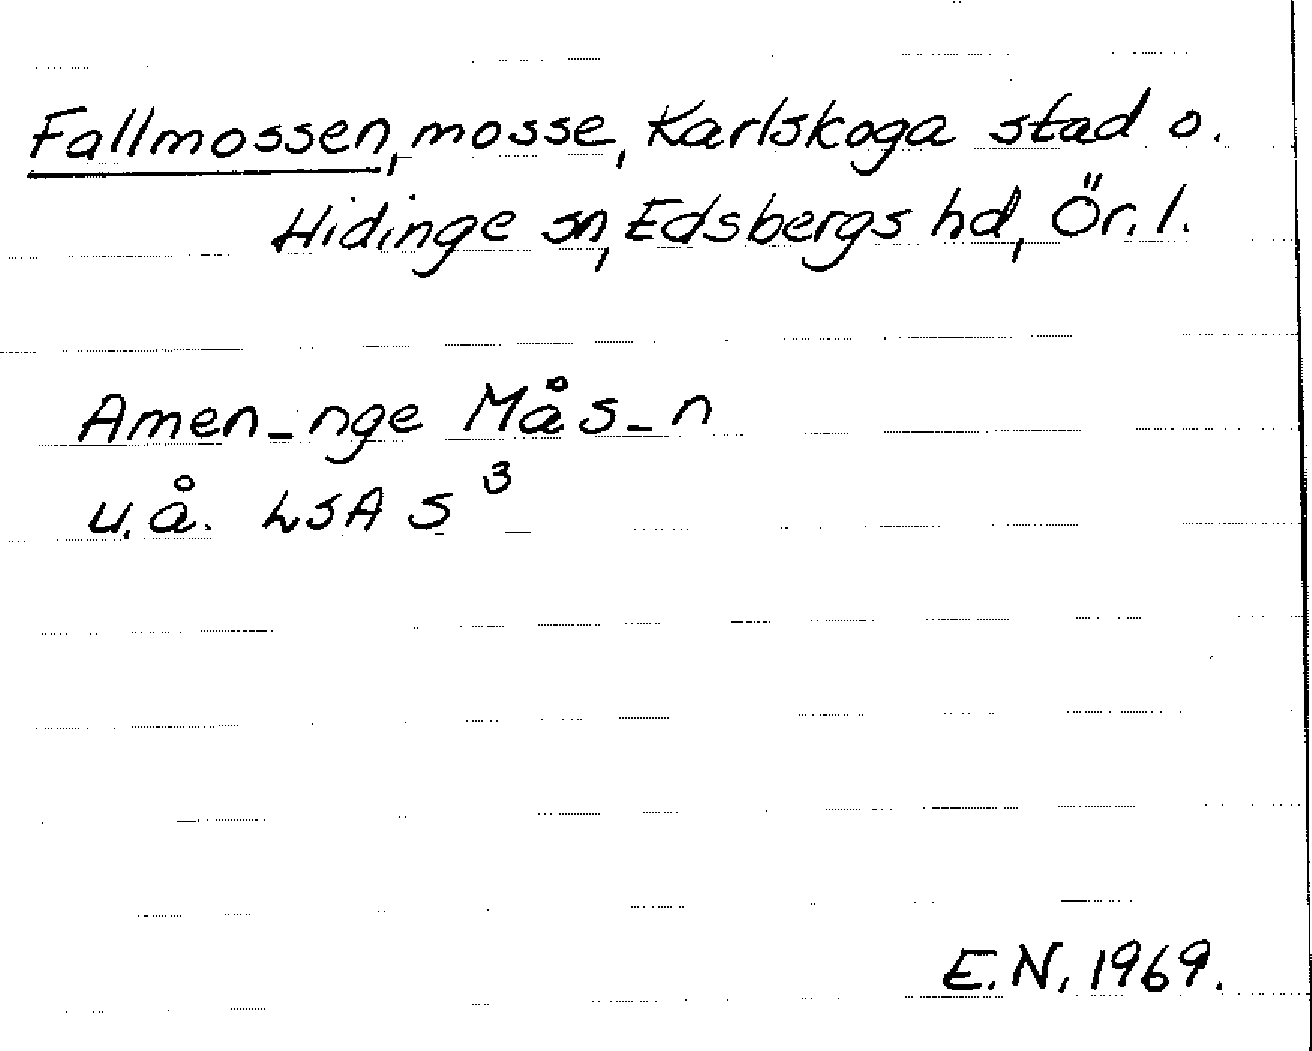 Fallmossen, mosse, Karlskoga stad o.
Hidinge sn, Edsbergs hd, Ör. l.
Amen_nge Mås_n
u.å. LSA S³
E.N. 1969.